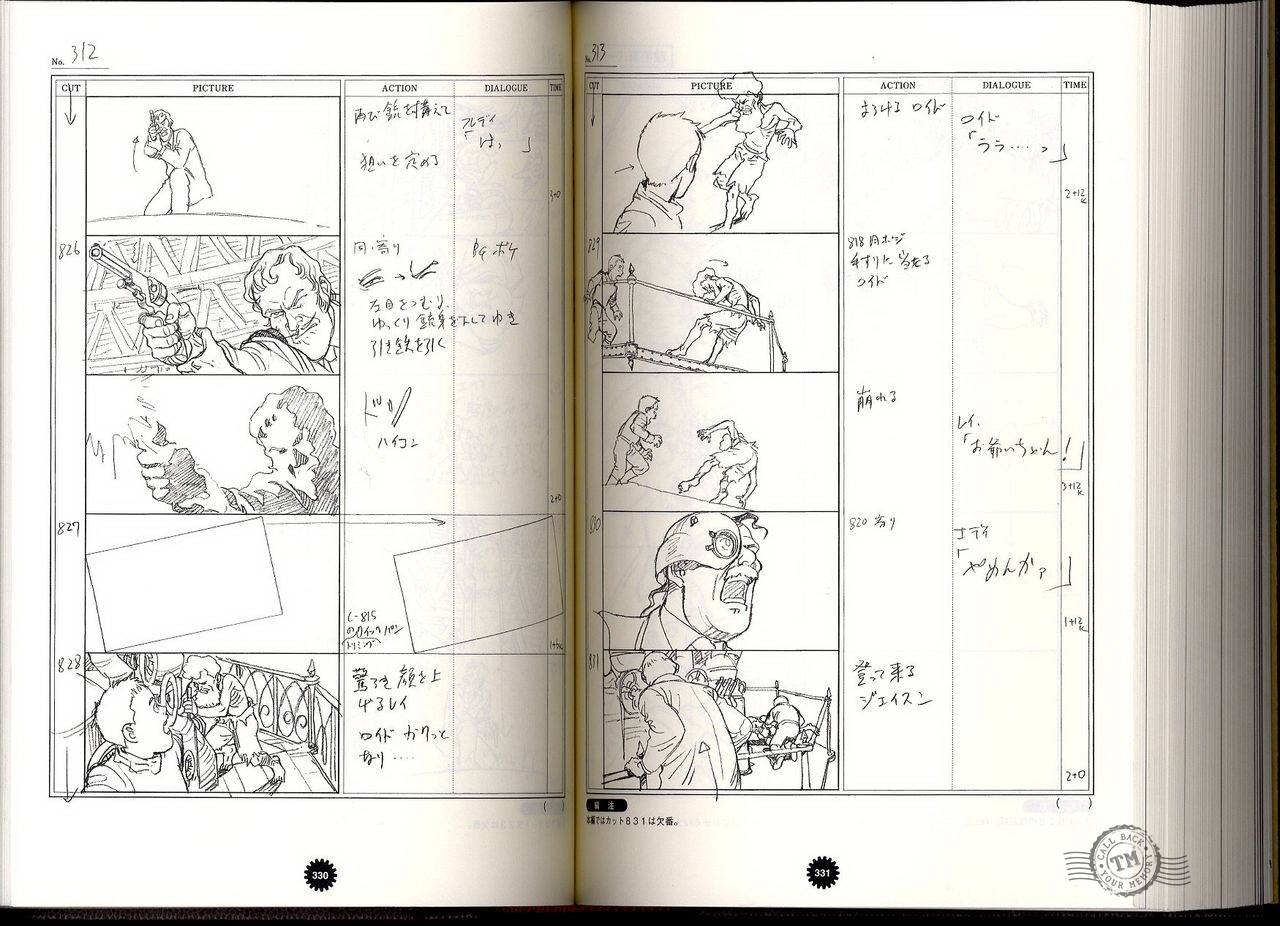 No. 312
CUT PICTURE ACTION DIALOGUE TIME
再び銃を構えて
狙いを定める
フレディ
「はっ 」
3+0
826
同・寄り
BG ボケ
左目をつむり、
ゆっくり銃身を下してゆき
引き鉄を引く
ドッ
ハイコン
2+0
827
C-815
のクイックパン
トリミング
828
驚き顔を上
げるレイ
ロイド ガクッと
なり‥‥
( )
330
No. 313
CUT PICTURE ACTION DIALOGUE TIME
よろける ロイド
ロイド
「うう‥‥っ」
2+12K
829
818 同ポジ
手すりに当たる
ロイド
崩れる
レイ
「お爺いちゃん!」
3+12K
830
820 寄り
エディ
「やめんかァ」
1+12K
831
登って来る
ジェイスン
2+0
( )
編 注
本編ではカット831は欠番。
331
CALL BACK
TM
YOUR MEMORY